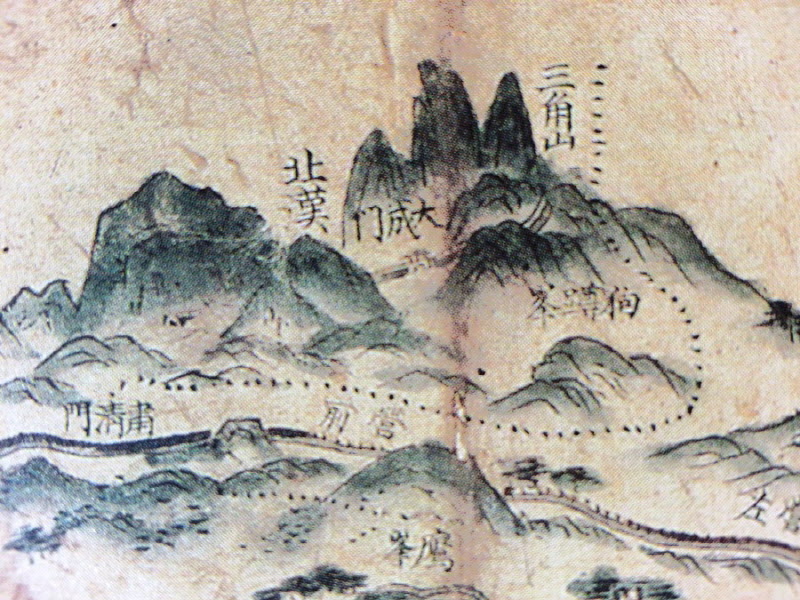 三角山
北漢
大成门
狗蹲峯
肅清門
營前
營左
鷹峯